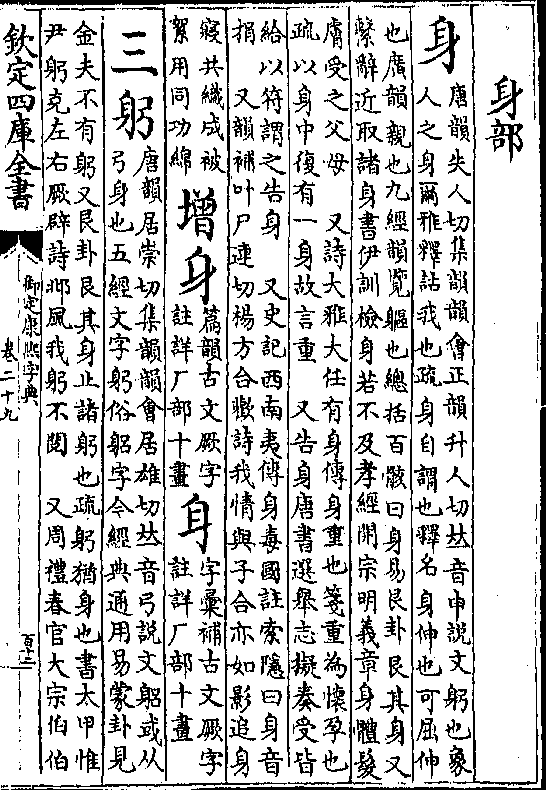 身部
身
唐韻失人切集韻韻會正韻升人切𠀤音申說文躬也象
人之身爾雅釋詁我也疏身自謂也釋名身伸也可屈伸
也廣韻親也九經韻覽軀也總括百骸曰身易艮卦艮其身又
繫辭近取諸身書伊訓檢身若不及孝經開宗明義章身體髮
膚受之父母　又詩大雅大任有身傳身重也箋重為懷孕也
疏以身中復有一身故言重　又告身唐書選舉志擬奏受皆
給以符謂之告身　又史記西南夷傳身毒國註索隱曰身音
捐　又韻補叶尸連切楊方合歡詩我情與子合亦如影追身
寢共織成被
絮用同功綿
增身
篇韻古文厥字
註詳厂部十畫
身
字彙補古文厥字
註詳厂部十畫
三躬
唐韻居崇切集韻韻會居雄切𠀤音弓說文躳或从
弓身也五經文字躬俗躳字今經典通用易蒙卦見
金夫不有躬又艮卦艮其身止諸躬也疏躬猶身也書太甲惟
尹躬克左右厥辟詩邶風我躬不閱　又周禮春官大宗伯伯
欽定四庫全書
御定康熙字典
卷二十九
百十二